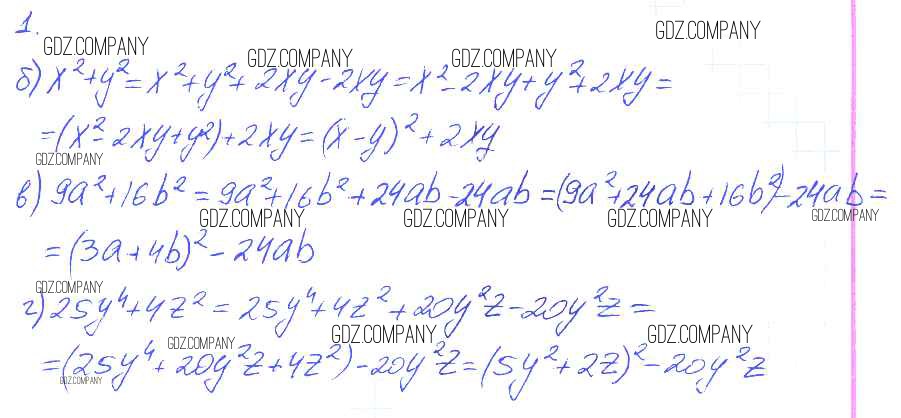 1.
GDZ.COMPANY
GDZ.COMPANY GDZ.COMPANY GDZ.COMPANY
б) x²+y² = x²+y²+2xy-2xy = x²-2xy+y²+2xy =
= (x²-2xy+y²)+2xy = (x-y)²+2xy
GDZ.COMPANY
в) 9a²+16b² = 9a²+16b²+24ab-24ab = (9a²+24ab+16b²)-24ab =
GDZ.COMPANY GDZ.COMPANY GDZ.COMPANY GDZ.COMPANY
= (3a+4b)²-24ab
GDZ.COMPANY
г) 25y⁴+4z² = 25y⁴+4z²+20y²z-20y²z =
GDZ.COMPANY GDZ.COMPANY GDZ.COMPANY
= (25y⁴+20y²z+4z²)-20y²z = (5y²+2z)²-20y²z
GDZ.COMPANY